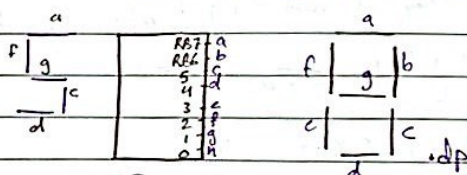 a
f
g
c
d
RB7 a
RB6 b
5 c
4 d
3 e
2 f
1 g
0 h
a
f b
g
e c
d .dp